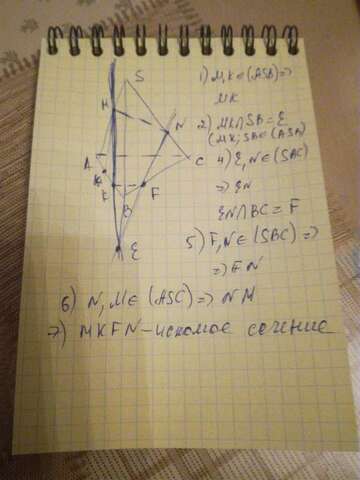 S
M
N
A
C
K
F
B
E
1) MK ∈ (ASB) =>
MK
2) MK ∩ SB = E
(MK; SB ∈ (ASB)
4) E, N ∈ (SBC)
=> EN
EN ∩ BC = F
5) F, N ∈ (SBC) =>
=> FN
6) N, M ∈ (ASC) => NM
7) MKFN - искомое сечение